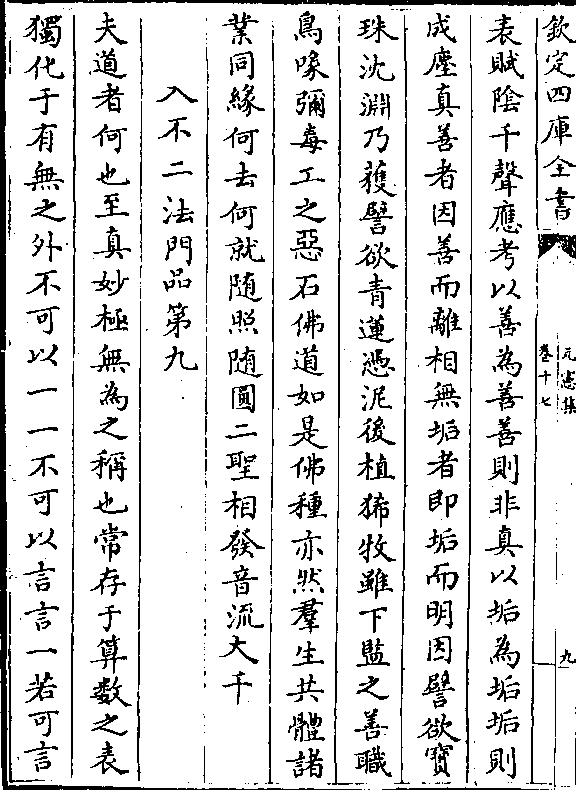 欽定四庫全書
元憲集
卷十七
九
表賦陰千聲應考以善為善善則非真以垢為垢垢則
成塵真善者因善而離相無垢者即垢而明因譬欲寶
珠沈淵乃獲譬欲青蓮憑泥後植豨牧雖下監之善職
鳥喙彌毒工之惡石佛道如是佛種亦然羣生共體諸
業同緣何去何就随照随圓二聖相發音流大千
入不二法門品第九
夫道者何也至真妙極無為之稱也常存于算數之表
獨化于有無之外不可以一一不可以言言一若可言